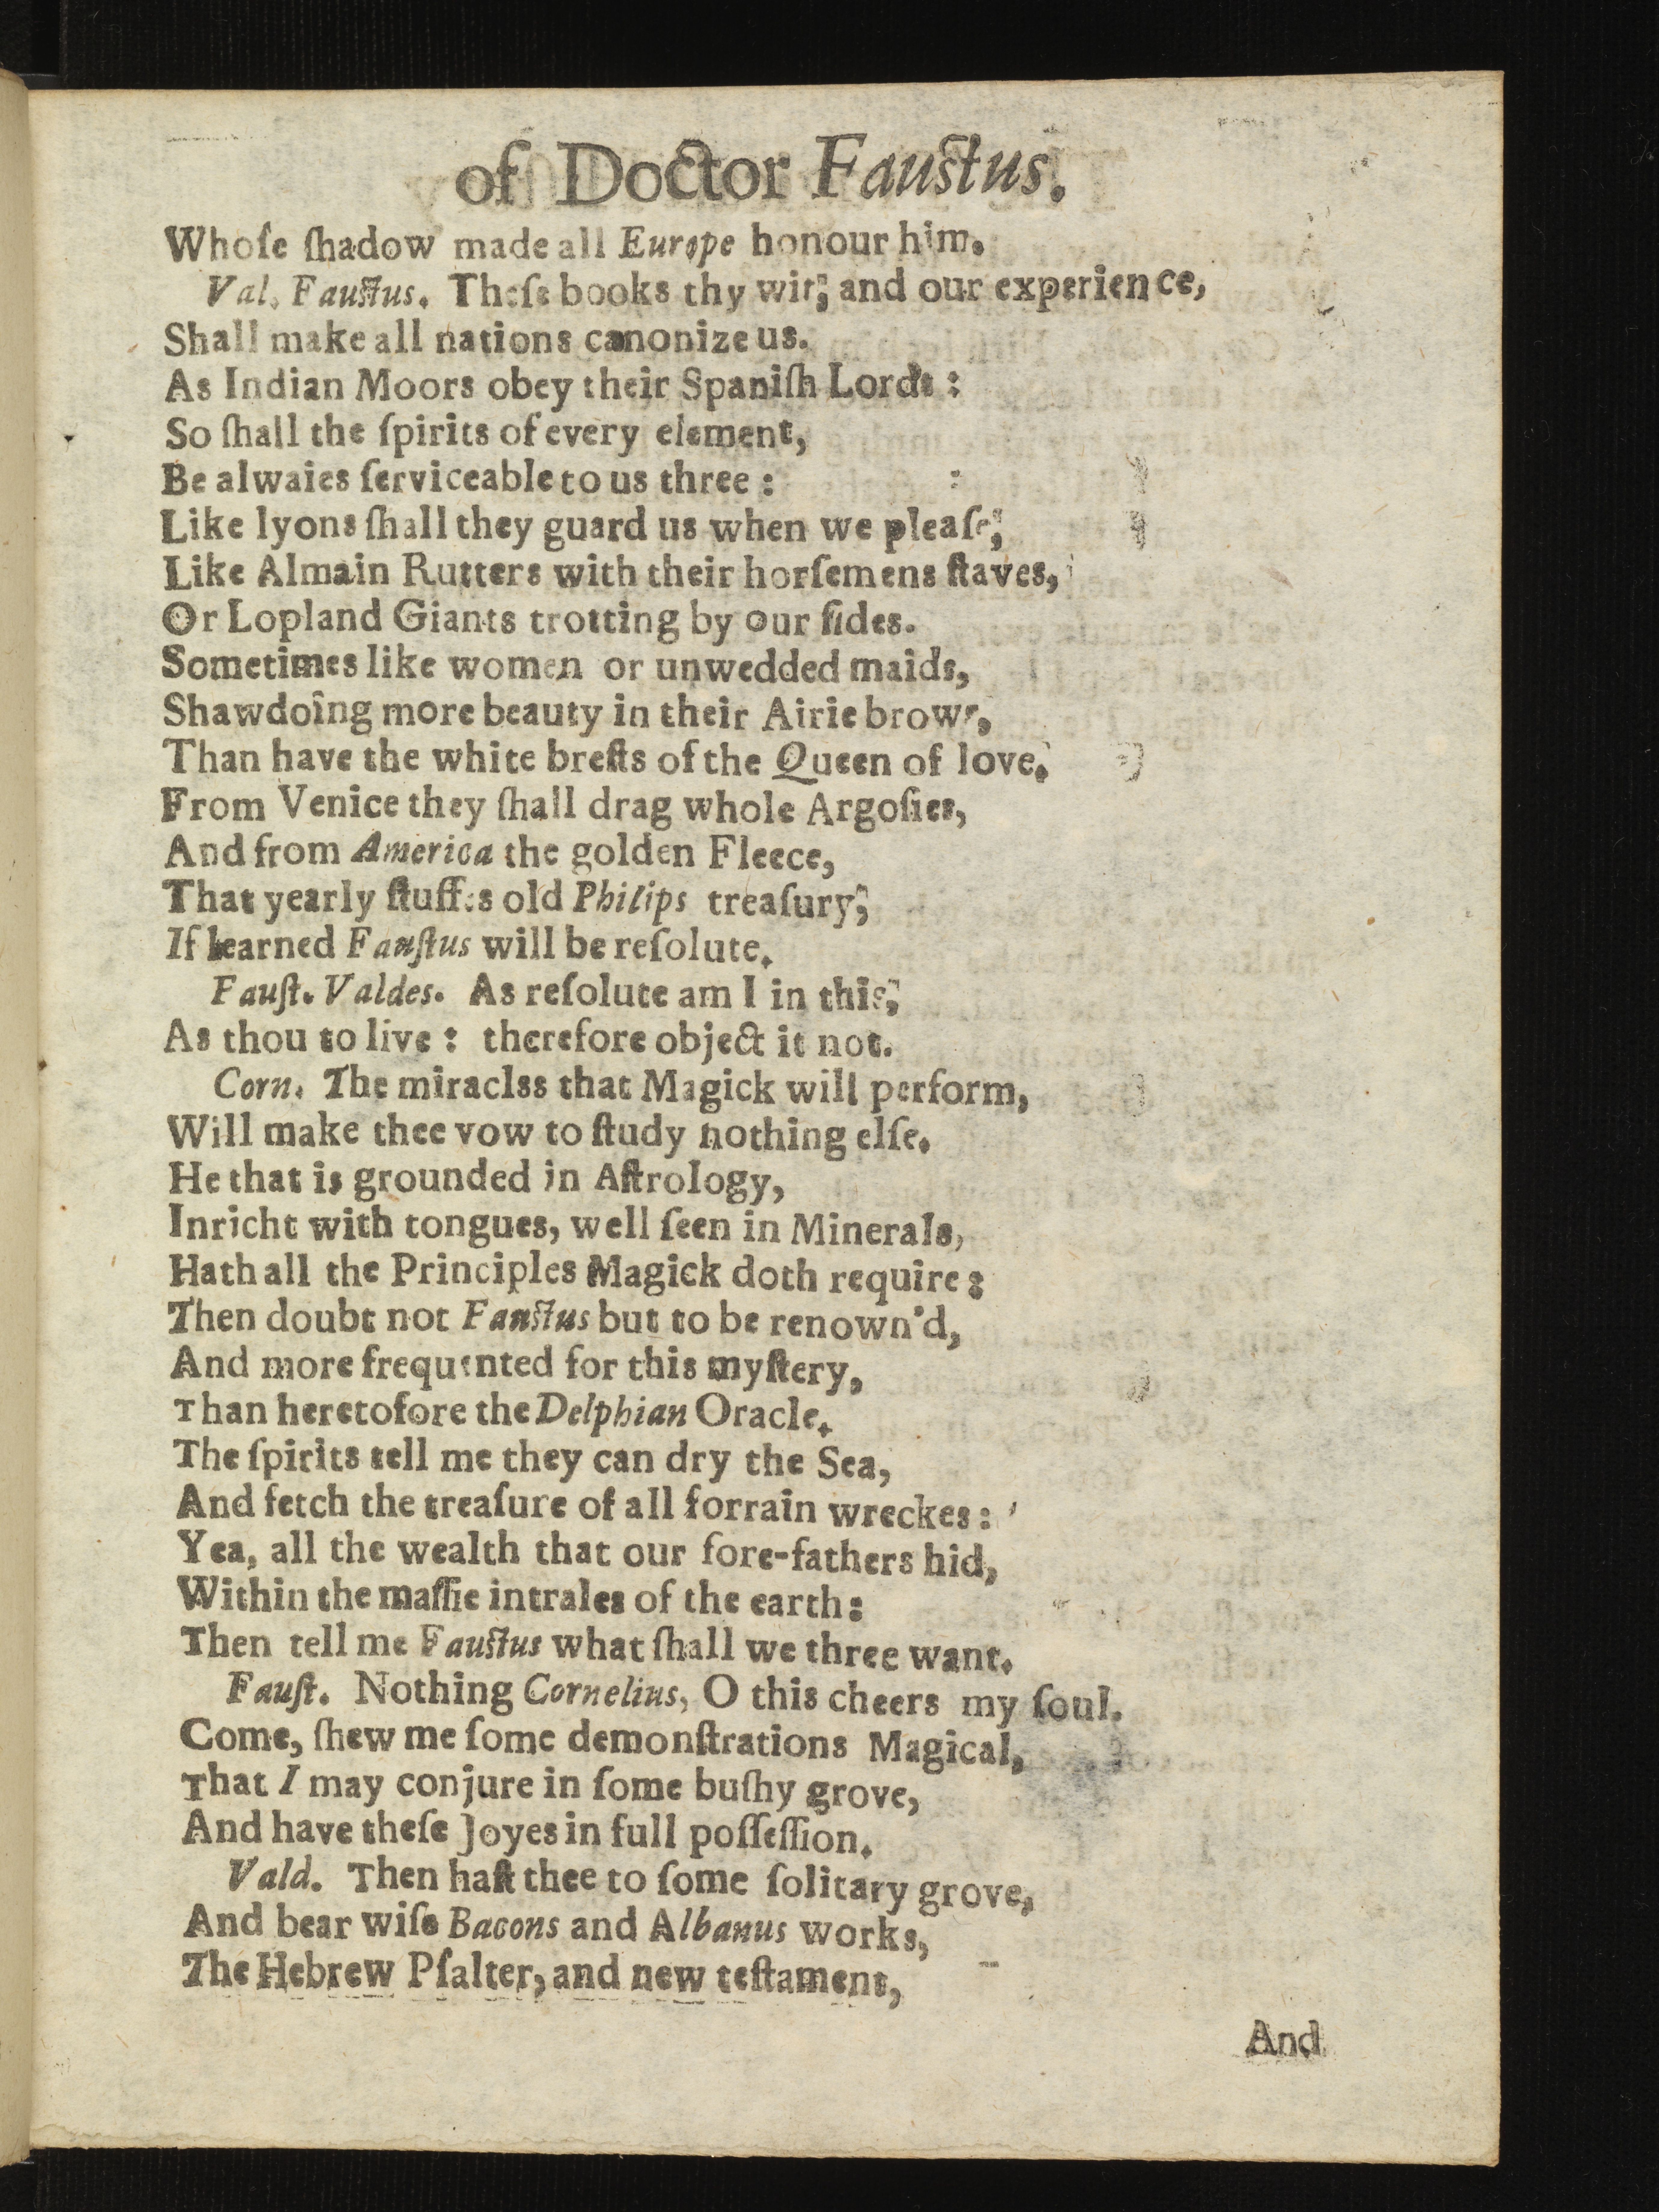 of Doctor Faustus.
Whoſe ſhadow made all Europe honour him.
Val. Faustus. Theſe books thy wit, and our experience,
Shall make all nations canonize us.
As Indian Moors obey their Spaniſh Lords :
So ſhall the ſpirits of every element,
Be alwaies ſerviceable to us three :
Like lyons ſhall they guard us when we pleaſe,
Like Almain Rutters with their horſemens ſtaves,
Or Lopland Giants trotting by our ſides.
Sometimes like women or unwedded maids,
Shawdoing more beauty in their Airie brows,
Than have the white breſts of the Queen of love.
From Venice they ſhall drag whole Argoſies,
And from America the golden Fleece,
That yearly ſtuffes old Philips treaſury,
If learned Fauſtus will be reſolute.
Fauſt. Valdes. As reſolute am I in this,
As thou to live : therefore object it not.
Corn. The miraclss that Magick will perform,
Will make thee vow to ſtudy nothing elſe.
He that is grounded in Aſtrology,
Inricht with tongues, well ſeen in Minerals,
Hath all the Principles Magick doth require :
Then doubt not Fanstus but to be renown'd,
And more frequented for this myſtery,
Than heretofore the Delphian Oracle.
The ſpirits tell me they can dry the Sea,
And fetch the treaſure of all forrain wreckes :
Yea, all the wealth that our fore-fathers hid,
Within the maſſie intrales of the earth :
Then tell me Faustus what ſhall we three want.
Fauſt. Nothing Cornelius, O this cheers my ſoul.
Come, ſhew me ſome demonſtrations Magical,
That I may conjure in ſome buſhy grove,
And have theſe Joyes in full poſſeſſion.
Vald. Then haſt thee to ſome ſolitary grove,
And bear wiſe Bacons and Albanus works,
The Hebrew Pſalter, and new teſtament,
And